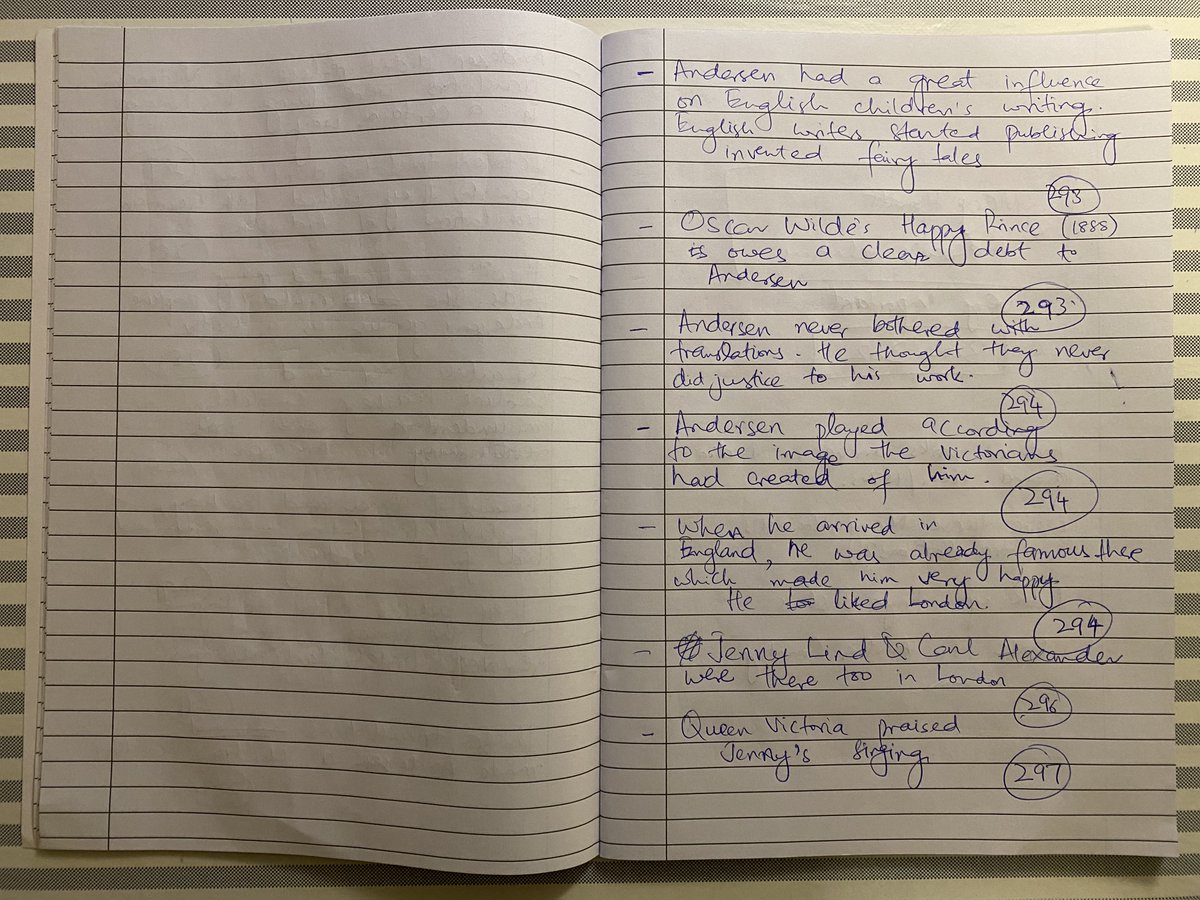 - Andersen had a great influence
on English children's writing.
English writers started publishing
invented fairy tales
293
- Oscar Wilde's Happy Prince (1888)
is owes a clear debt to
Andersen
293
- Andersen never bothered with
translations. He thought they never
did justice to his work.
294
- Andersen played according
to the image the Victorians
had created of him.
294
- When he arrived in
England, he was already famous there
which made him very happy
He liked London.
294
- Jenny Lind & Carl Alexander
were there too in London
296
- Queen Victoria praised
Jenny's singing
297